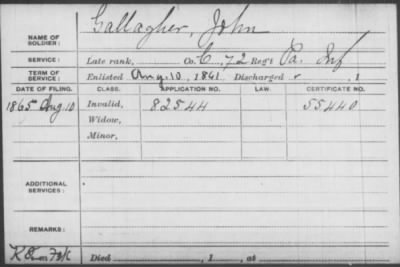 Gallagher, John
NAME OF
SOLDIER:
SERVICE: Late rank, Co. C, 72 Reg't Pa. Inf
TERM OF
SERVICE: Enlisted Aug. 10, 1861. Discharged , 1
DATE OF FILING. CLASS. APPLICATION NO. LAW. CERTIFICATE NO.
1865 Aug. 10 Invalid, 82544 55440
Widow,
Minor,
ADDITIONAL
SERVICES:
REMARKS:
Died , 1 , at